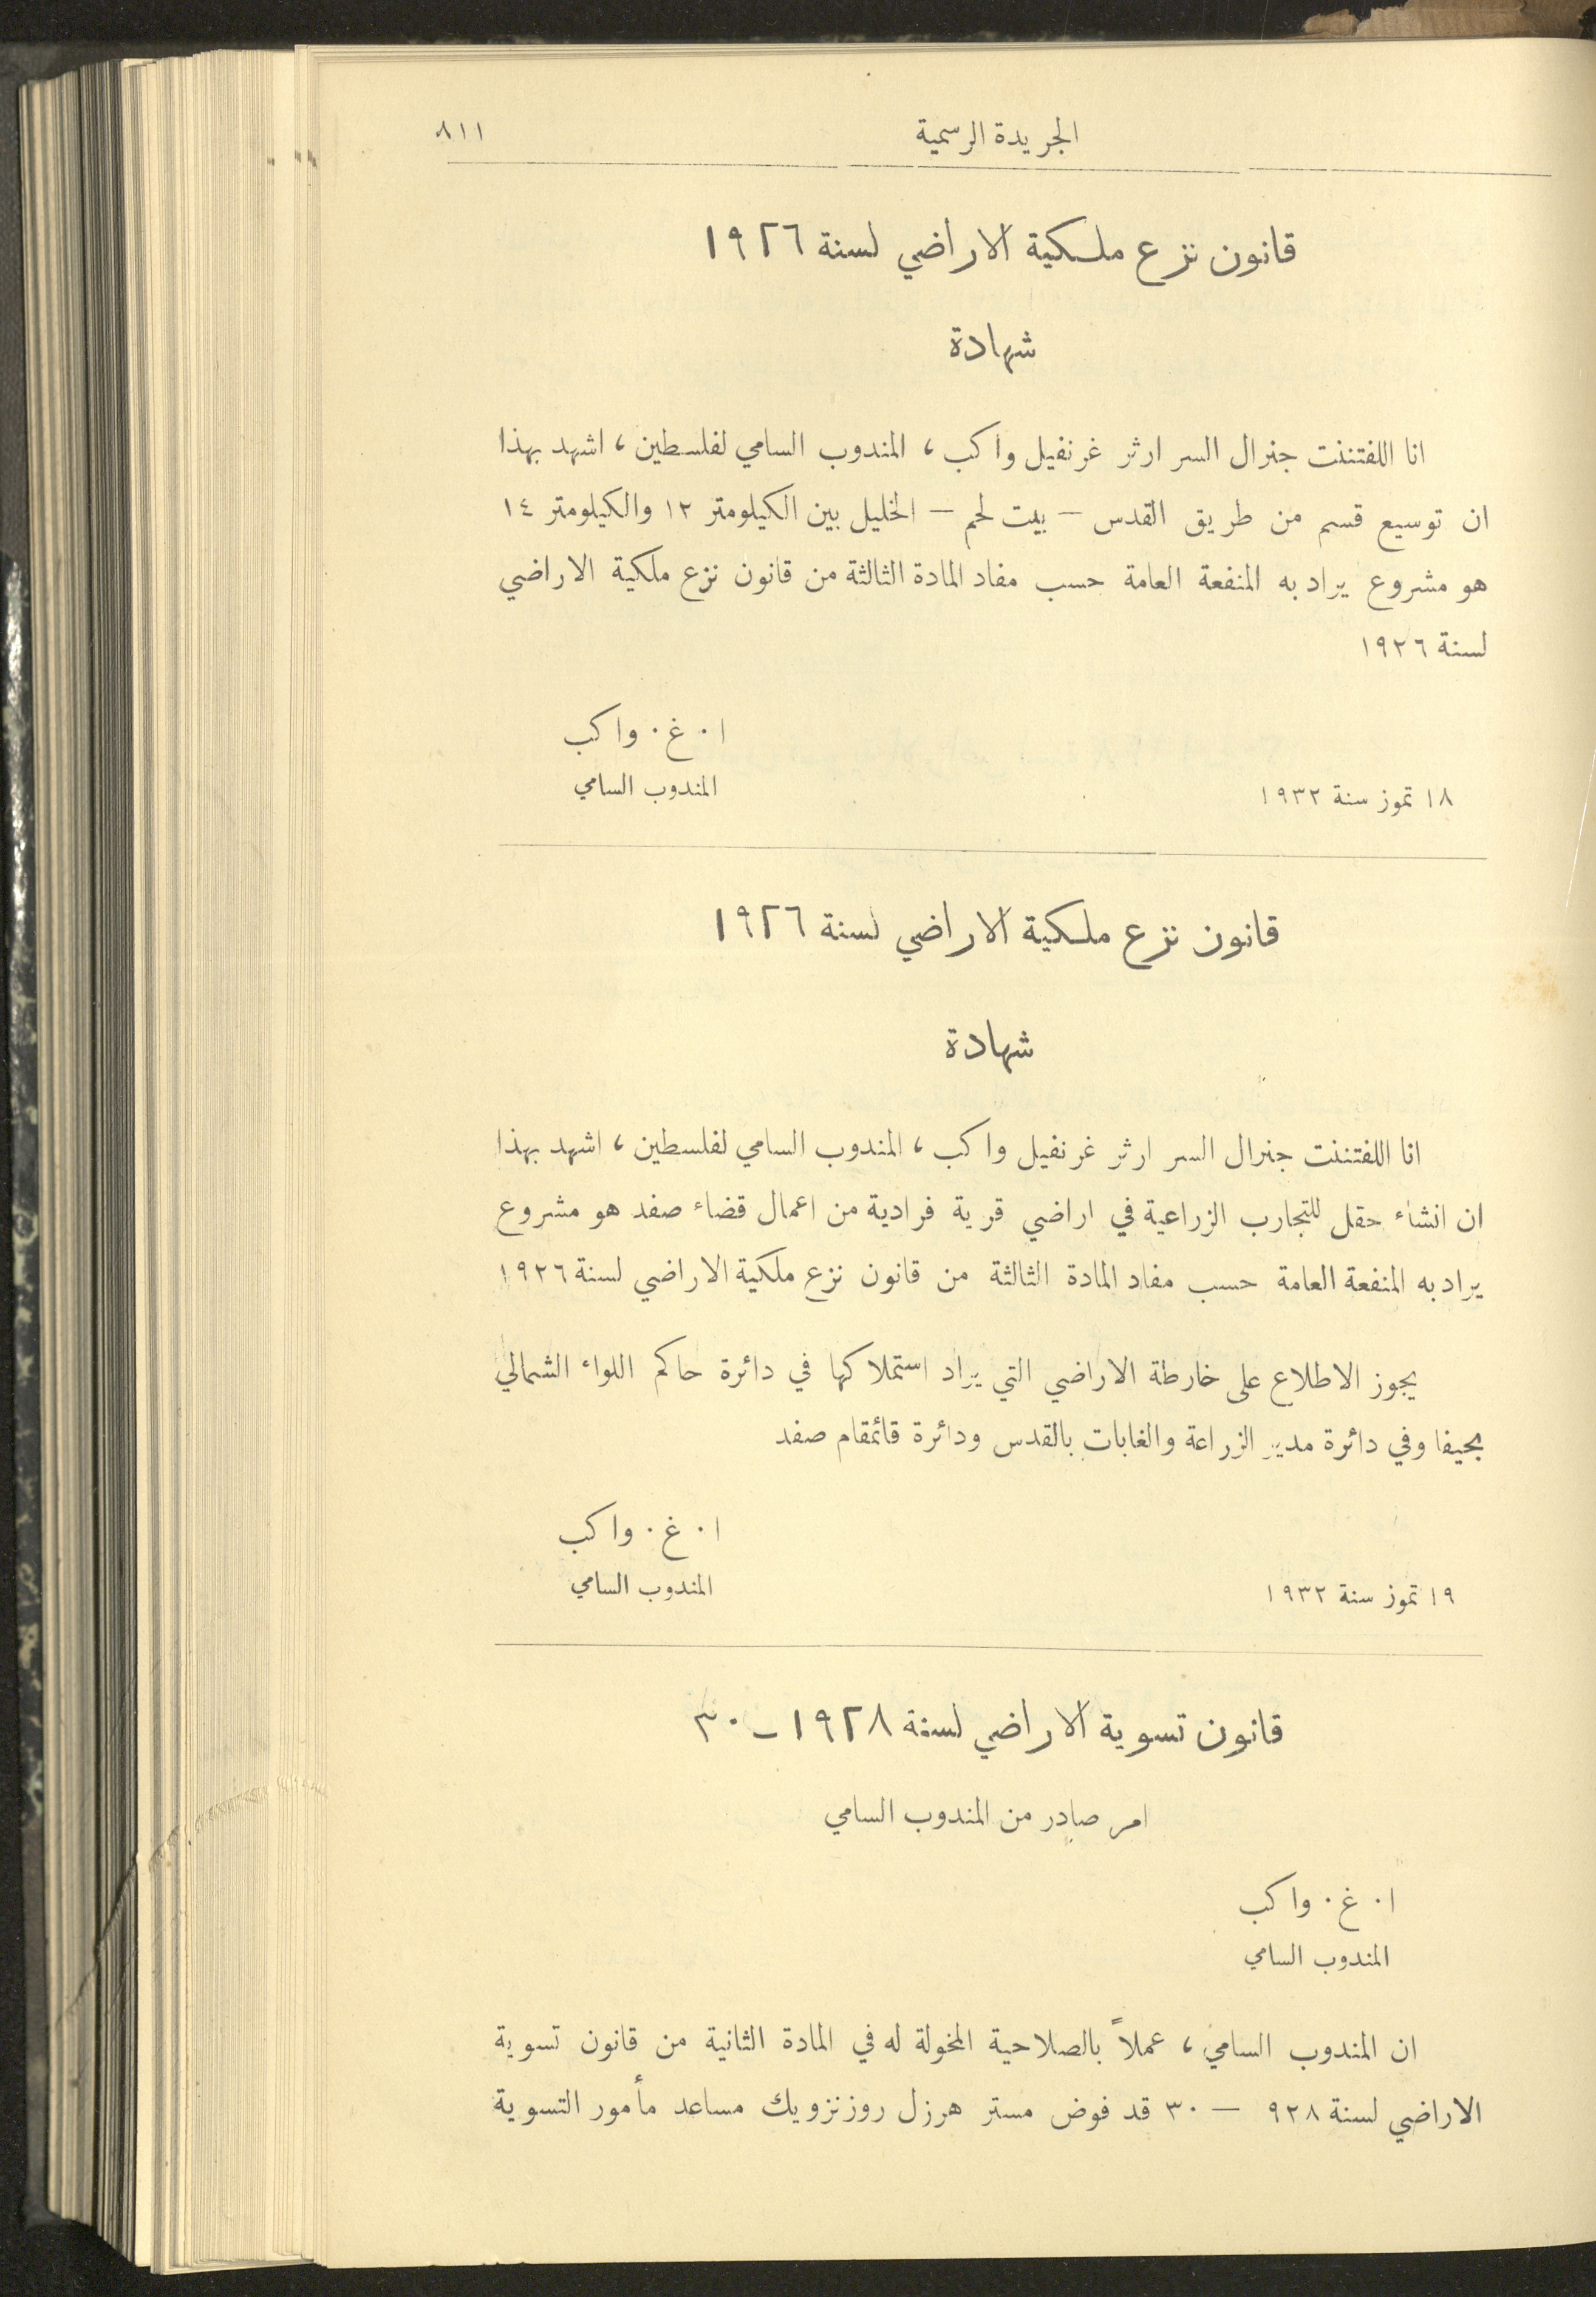 الجريدة الرسمية ٨١١
قانون نزع ملكية الاراضي لسنة ١٩٢٦
شهادة
انا اللفتننت جنرال السر ارثر غرنفيل واكب ، المندوب السامي لفلسطين ، اشهد بهذا
ان توسيع قسم من طريق القدس – بيت لحم – الخليل بين الكيلومتر ١٢ والكيلومتر ١٤
هو مشروع يراد به المنفعة العامة حسب مفاد المادة الثالثة من قانون نزع ملكية الاراضي
لسنة ١٩٢٦
ا . غ . واكب
١٨ تموز سنة ١٩٣٢ المندوب السامي
قانون نزع ملكية الاراضي لسنة ١٩٢٦
شهادة
انا اللفتننت جنرال السر ارثر غرنفيل واكب ، المندوب السامي لفلسطين ، اشهد بهذا
ان انشاء حقل للتجارب الزراعية في اراضي قرية فرادية من اعمال قضاء صفد هو مشروع
يراد به المنفعة العامة حسب مفاد المادة الثالثة من قانون نزع ملكية الاراضي لسنة ١٩٢٦
يجوز الاطلاع على خارطة الاراضي التي يراد استملاكها في دائرة حاكم اللواء الشمالي
بحيفا وفي دائرة مدير الزراعة والغابات بالقدس ودائرة قائمقام صفد
ا . غ . واكب
١٩ تموز سنة ١٩٣٢ المندوب السامي
قانون تسوية الاراضي لسنة ١٩٢٨ – ٣٠
امر صادر من المندوب السامي
ا . غ . واكب
المندوب السامي
ان المندوب السامي ، عملاً بالصلاحية المخولة له في المادة الثانية من قانون تسوية
الاراضي لسنة ٩٢٨ – ٣٠ قد فوض مستر هرزل روزنزويك مساعد مأمور التسوية